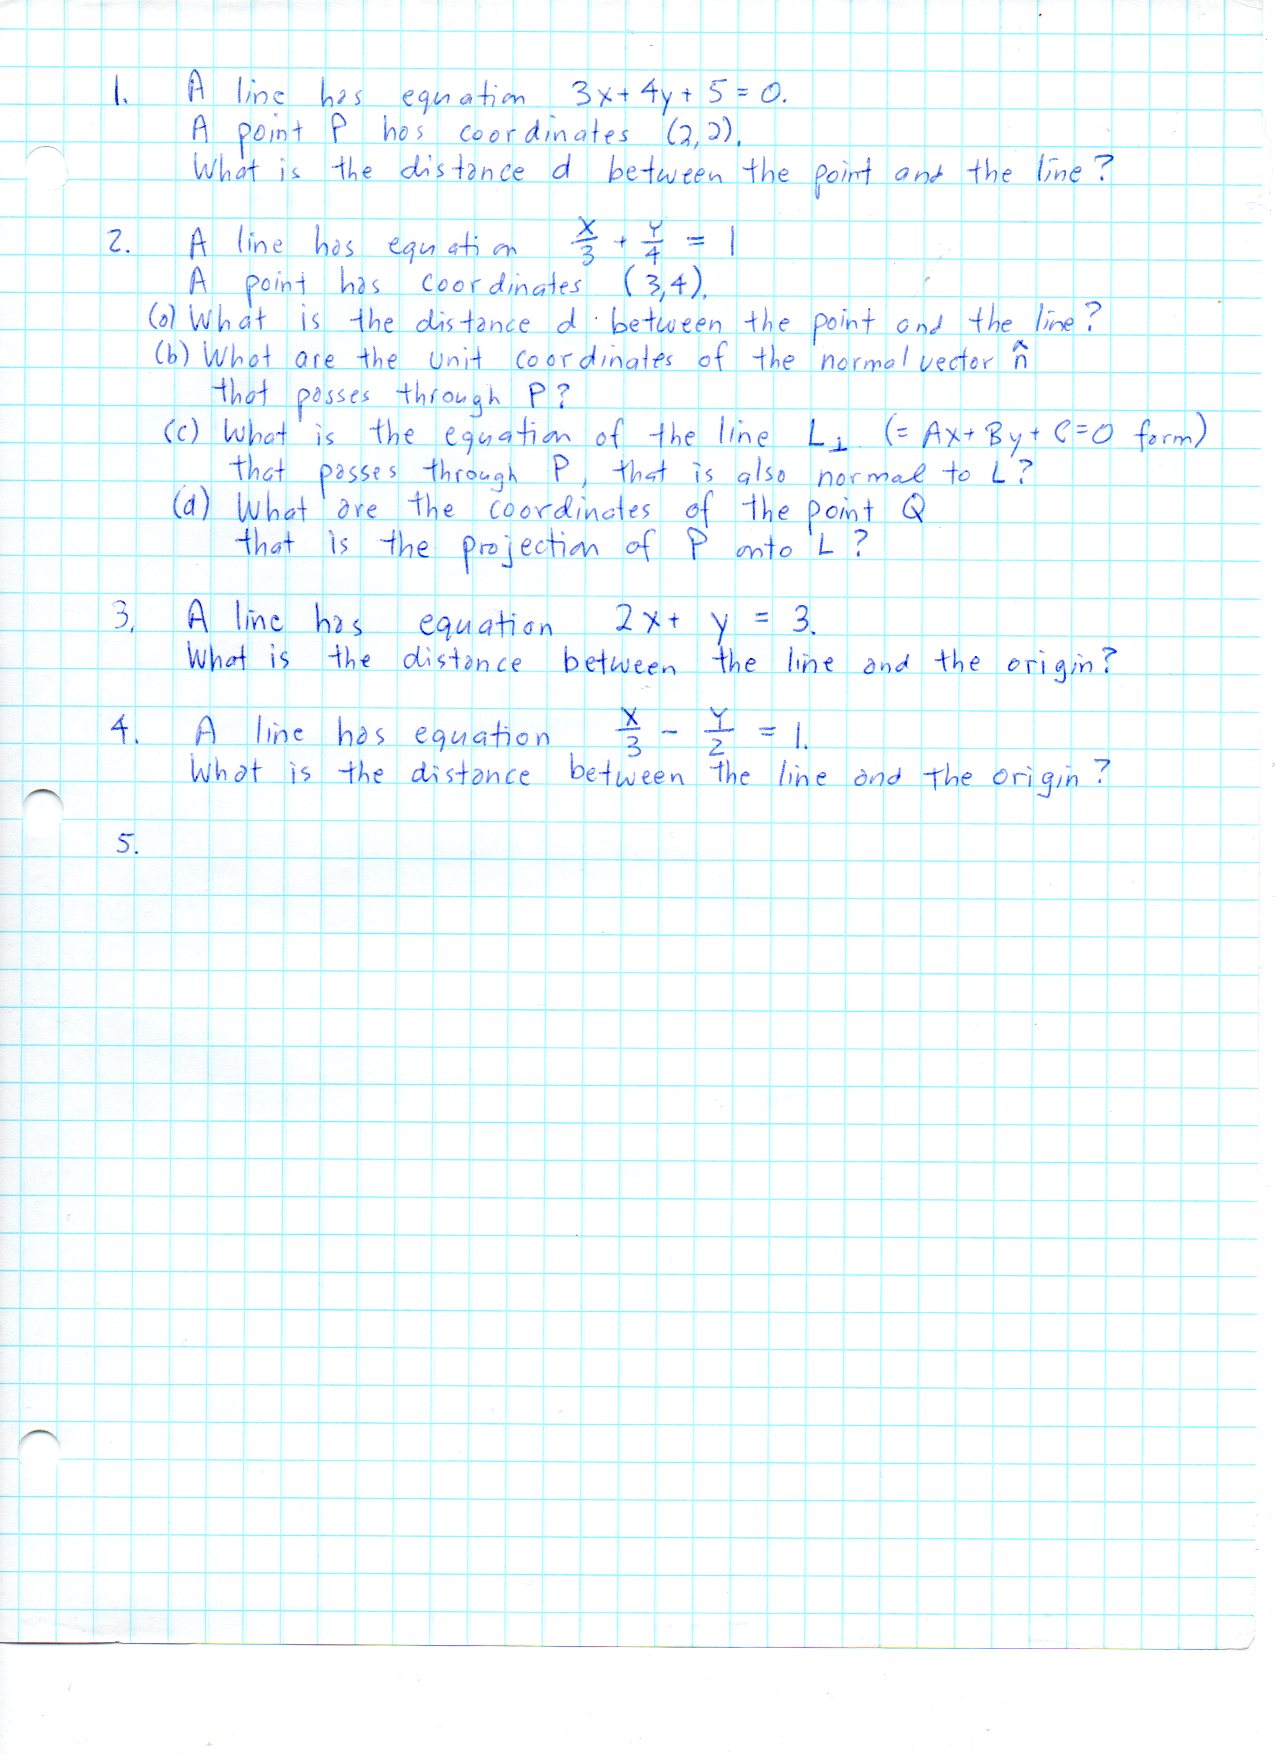 1. A line has equation 3x + 4y + 5 = 0.
A point P has coordinates (2,2).
What is the distance d between the point and the line?
2. A line has equation x/3 + y/4 = 1
A point has coordinates (3,4).
(a) What is the distance d between the point and the line?
(b) What are the unit coordinates of the normal vector n̂
that passes through P?
(c) What is the equation of the line L⊥ (= Ax + By + C = 0 form)
that passes through P, that is also normal to L?
(d) What are the coordinates of the point Q
that is the projection of P onto L?
3. A line has equation 2x + y = 3.
What is the distance between the line and the origin?
4. A line has equation x/3 - y/2 = 1.
What is the distance between the line and the origin?
5.